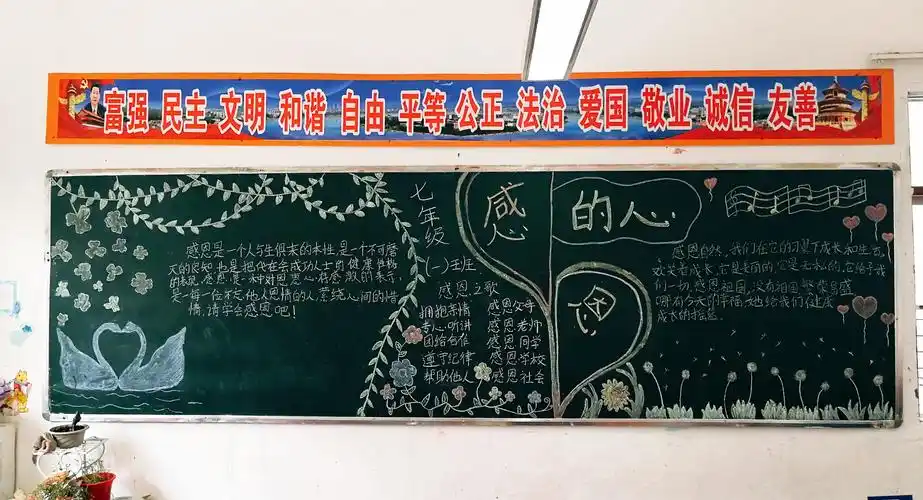 富强 民主 文明 和谐 自由 平等 公正 法治 爱国 敬业 诚信 友善
感恩是一个人与生俱来的本性,是一个不可磨
灭的良知,也是现代社会成功人士的健康性格
的表现,感恩
是每一位不忘他人恩情的人,萦绕心间的情
情,请学会感恩吧!
七年级
(一)班
感恩之歌
拥抱亲情 感恩父母
专心听讲 感恩老师
团结合作 感恩同学
遵守纪律 感恩学校
帮助他人 感恩社会
感
恩
的心
感恩自然,我们在它的
欢笑着成长,它是美丽的,它是无私的,它给予我
们一切,感恩祖国,没有祖国繁荣昌盛
哪有今天的幸福,她给我们健康
成长的